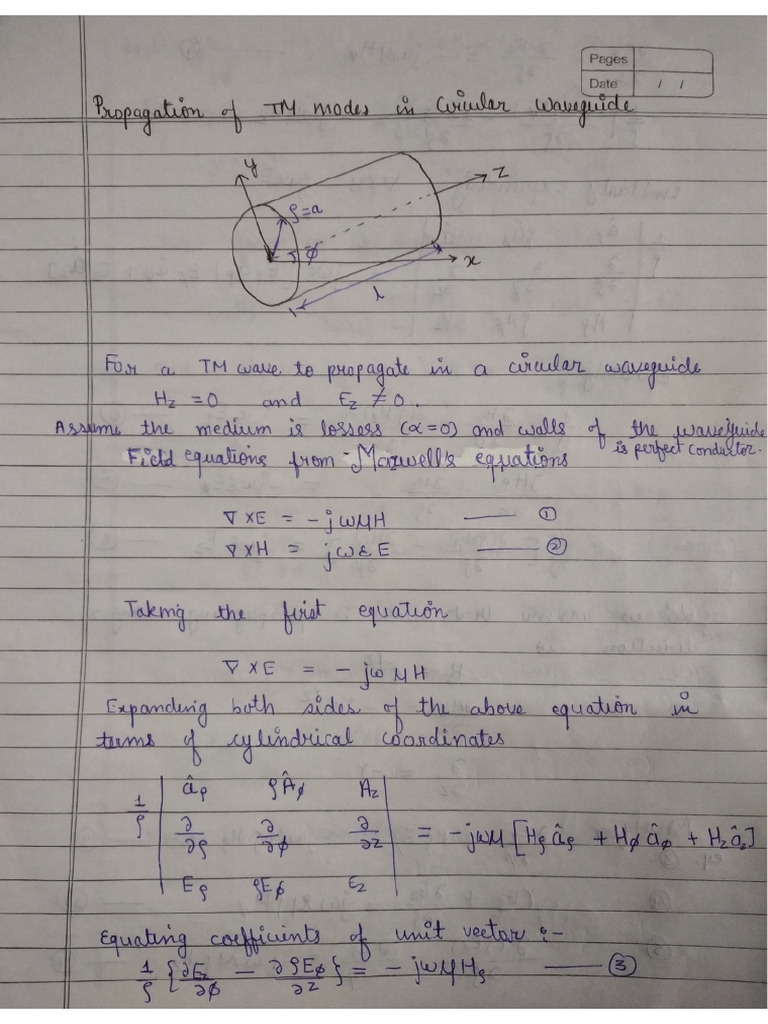 Pages
Date / /
Propagation of TM modes in Circular Waveguide
y
z
ρ=a
ϕ
x
l
For a TM wave to propagate in a circular waveguide
Hz = 0 and Ez ≠ 0.
Assume the medium is lossess (α=0) and walls of the waveguide
is perfect conductor.
Field equations from Maxwell's equations
∇×E = -jωμH —— ①
∇×H = jωεE —— ②
Taking the first equation
∇×E = -jωμH
Expanding both sides of the above equation in
terms of cylindrical coordinates
1/ρ | âρ ρÂϕ Az |
| ∂/∂ρ ∂/∂ϕ ∂/∂z | = -jωμ [Hρ âρ + Hϕ âϕ + Hz âz]
| Eρ ρEϕ Ez |
Equating coefficients of unit vector :-
1/ρ {∂Ez/∂ϕ - ∂ρEϕ/∂z} = -jωμHρ —— ③